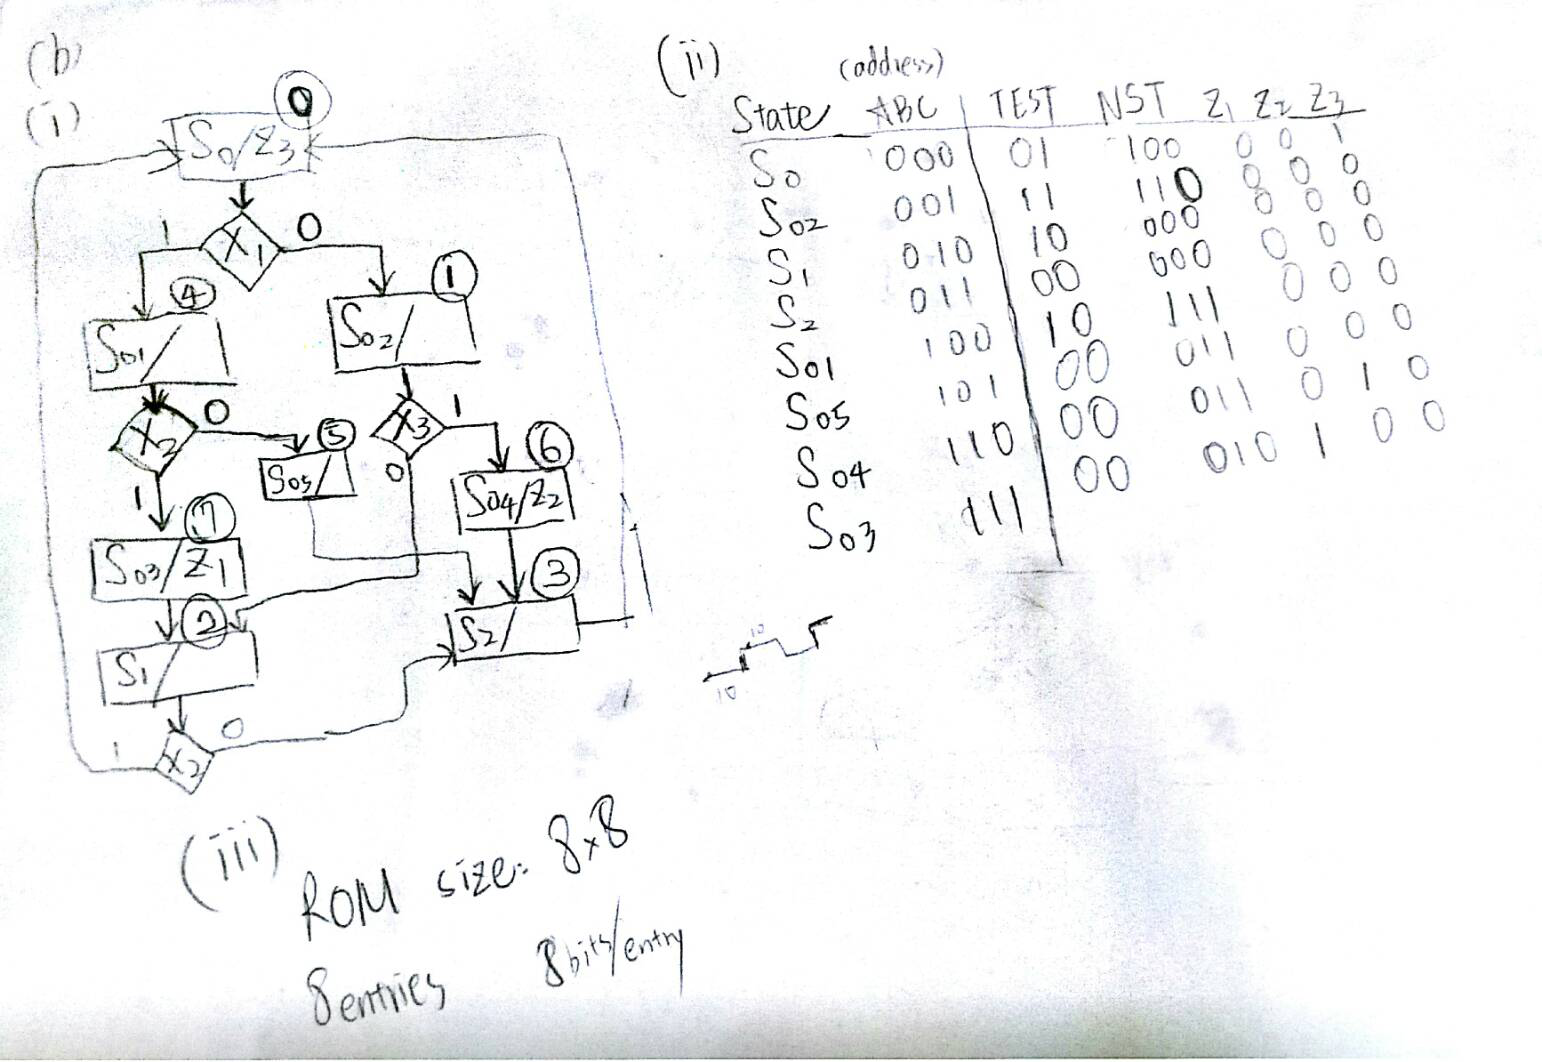 (b)
(i)
0
S0/Z3
1 X1 0
4
S01/
1
S02/
X2 0
1
5
S05/
X3 1
0
6
S04/Z2
7
S03/Z1
2
S1/
3
S2/
1 X2 0
(ii)
(address)
State ABC TEST NST Z1 Z2 Z3
S0 000 01 100 0 0 1
S02 001 11 110 0 0 0
S1 010 10 000 0 0 0
S2 011 00 000 0 0 0
S01 100 10 111 0 0 0
S05 101 00 011 0 0 0
S04 110 00 011 0 1 0
S03 111 00 010 1 0 0
10
10
(iii)
ROM size: 8x8
8 entries 8bits/entry